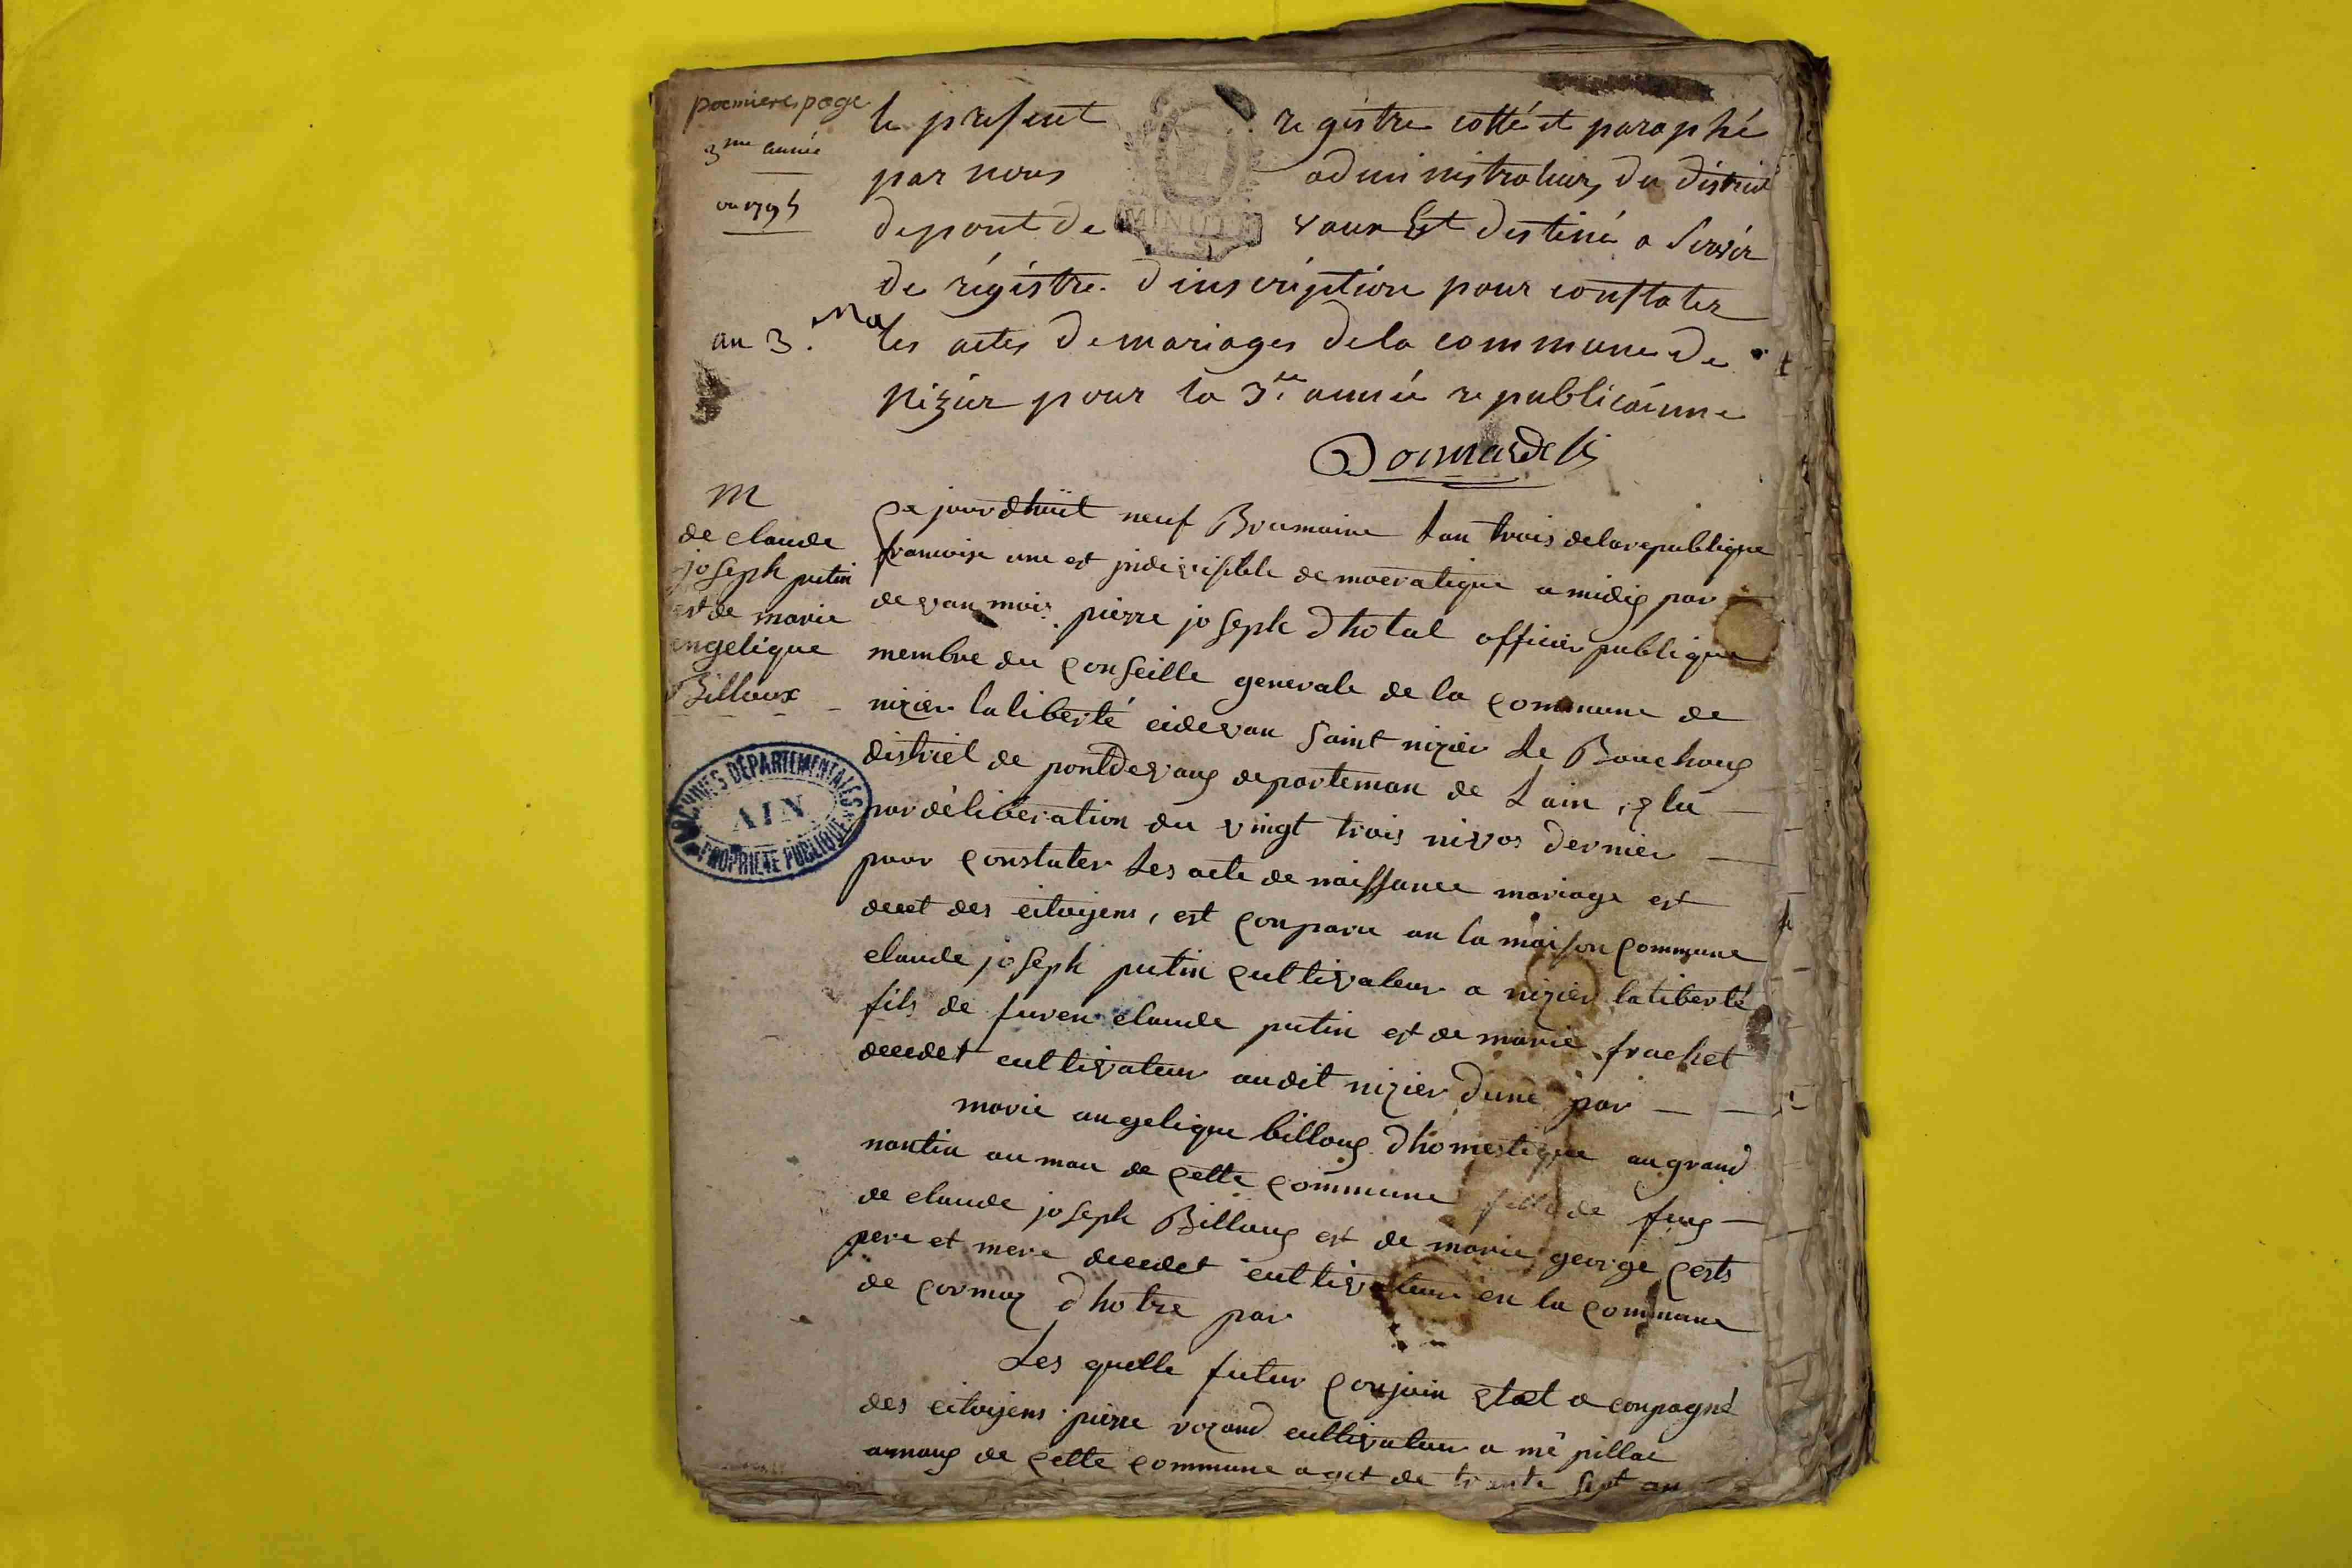 premiere page
3me année
ou 1795
le present registre cotté et paraphé
par nous administrateurs du district
depont de vaux Est destiné a servir
MINUTE
de régistre d'inscription pour constater
an 3.
les actes de mariages dela commune de
nizier pour la 3e année republicainne
m
de claude
joseph putin
est de marie
engelique
Billoux
Ce jourdhuit neuf Brumaire Lan trois delarepublique
francoise une est jndivisible democratique a midis par
devan mois pierre joseph dhotal officier publique
membre du Conseille generale de la Commune de
nizier la liberté cidevan Saint nizier Le Bouchoux
district de pontdevaux departeman de Lain, elu
par délibération du vingt trois nivos dernier
pour Constater Les acte de naissance mariage est
decet des citoyens, est Conparu an la maison Commune
claude joseph putin Cultivateur a nizier la liberté
fils de furen claude putin est de marie frachet
decedet cultivateur audit nizier dune par
marie angelique billoux dhomestique au grand
nantia au mau de Cette Commune fille de feux
de claude joseph Billoux est de marie george Cests
pere et mere decedet cultivateur en la Commune
de Cormoz dhotre par
Les quelle futur Conjoin etoet aconpagné
des citoyens pierre vozand cultivateur a mé pillac
amaux de Cette Commune aget de trante sept an
ARCHIVES DÉPARTEMENTALES
AIN
PROPRIÉTÉ PUBLIQUE